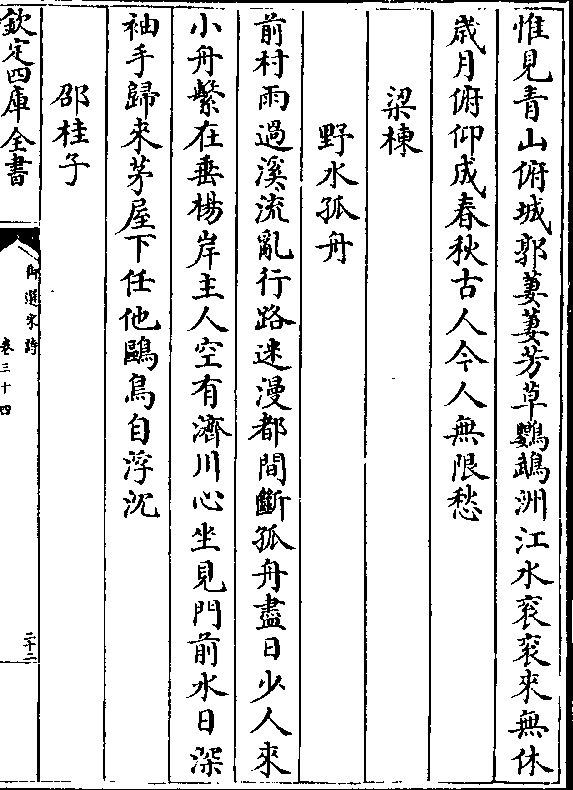 惟見青山俯城郭萋萋芳草鸚鵡洲江水衮衮來無休
歲月俯仰成春秋古人今人無限愁
梁棟
野水孤舟
前村雨過溪流亂行路迷漫都間斷孤舟盡日少人來
小舟繫在垂楊岸主人空有濟川心坐見門前水日深
袖手歸來茅屋下任他鷗鳥自浮沉
邵桂子
欽定四庫全書
御選宋詩
卷三十四
二十二